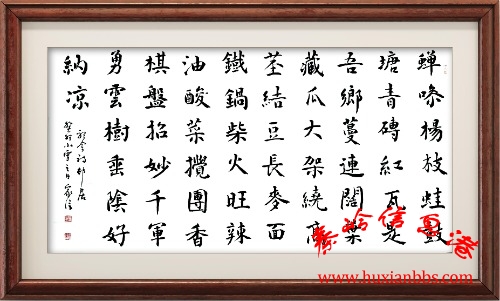 蟬咏楊枝蛙鼓
塘青磚紅瓦是
吾鄉蔓連闊葉
藏瓜大架繞高
莖結豆長麥面
鐵鍋柴火旺辣
油酸菜攪團香
棋盤招妙千軍
勇雲樹垂陰好
納凉
村居
小雪之日
信息港
www.huxianbbs.com